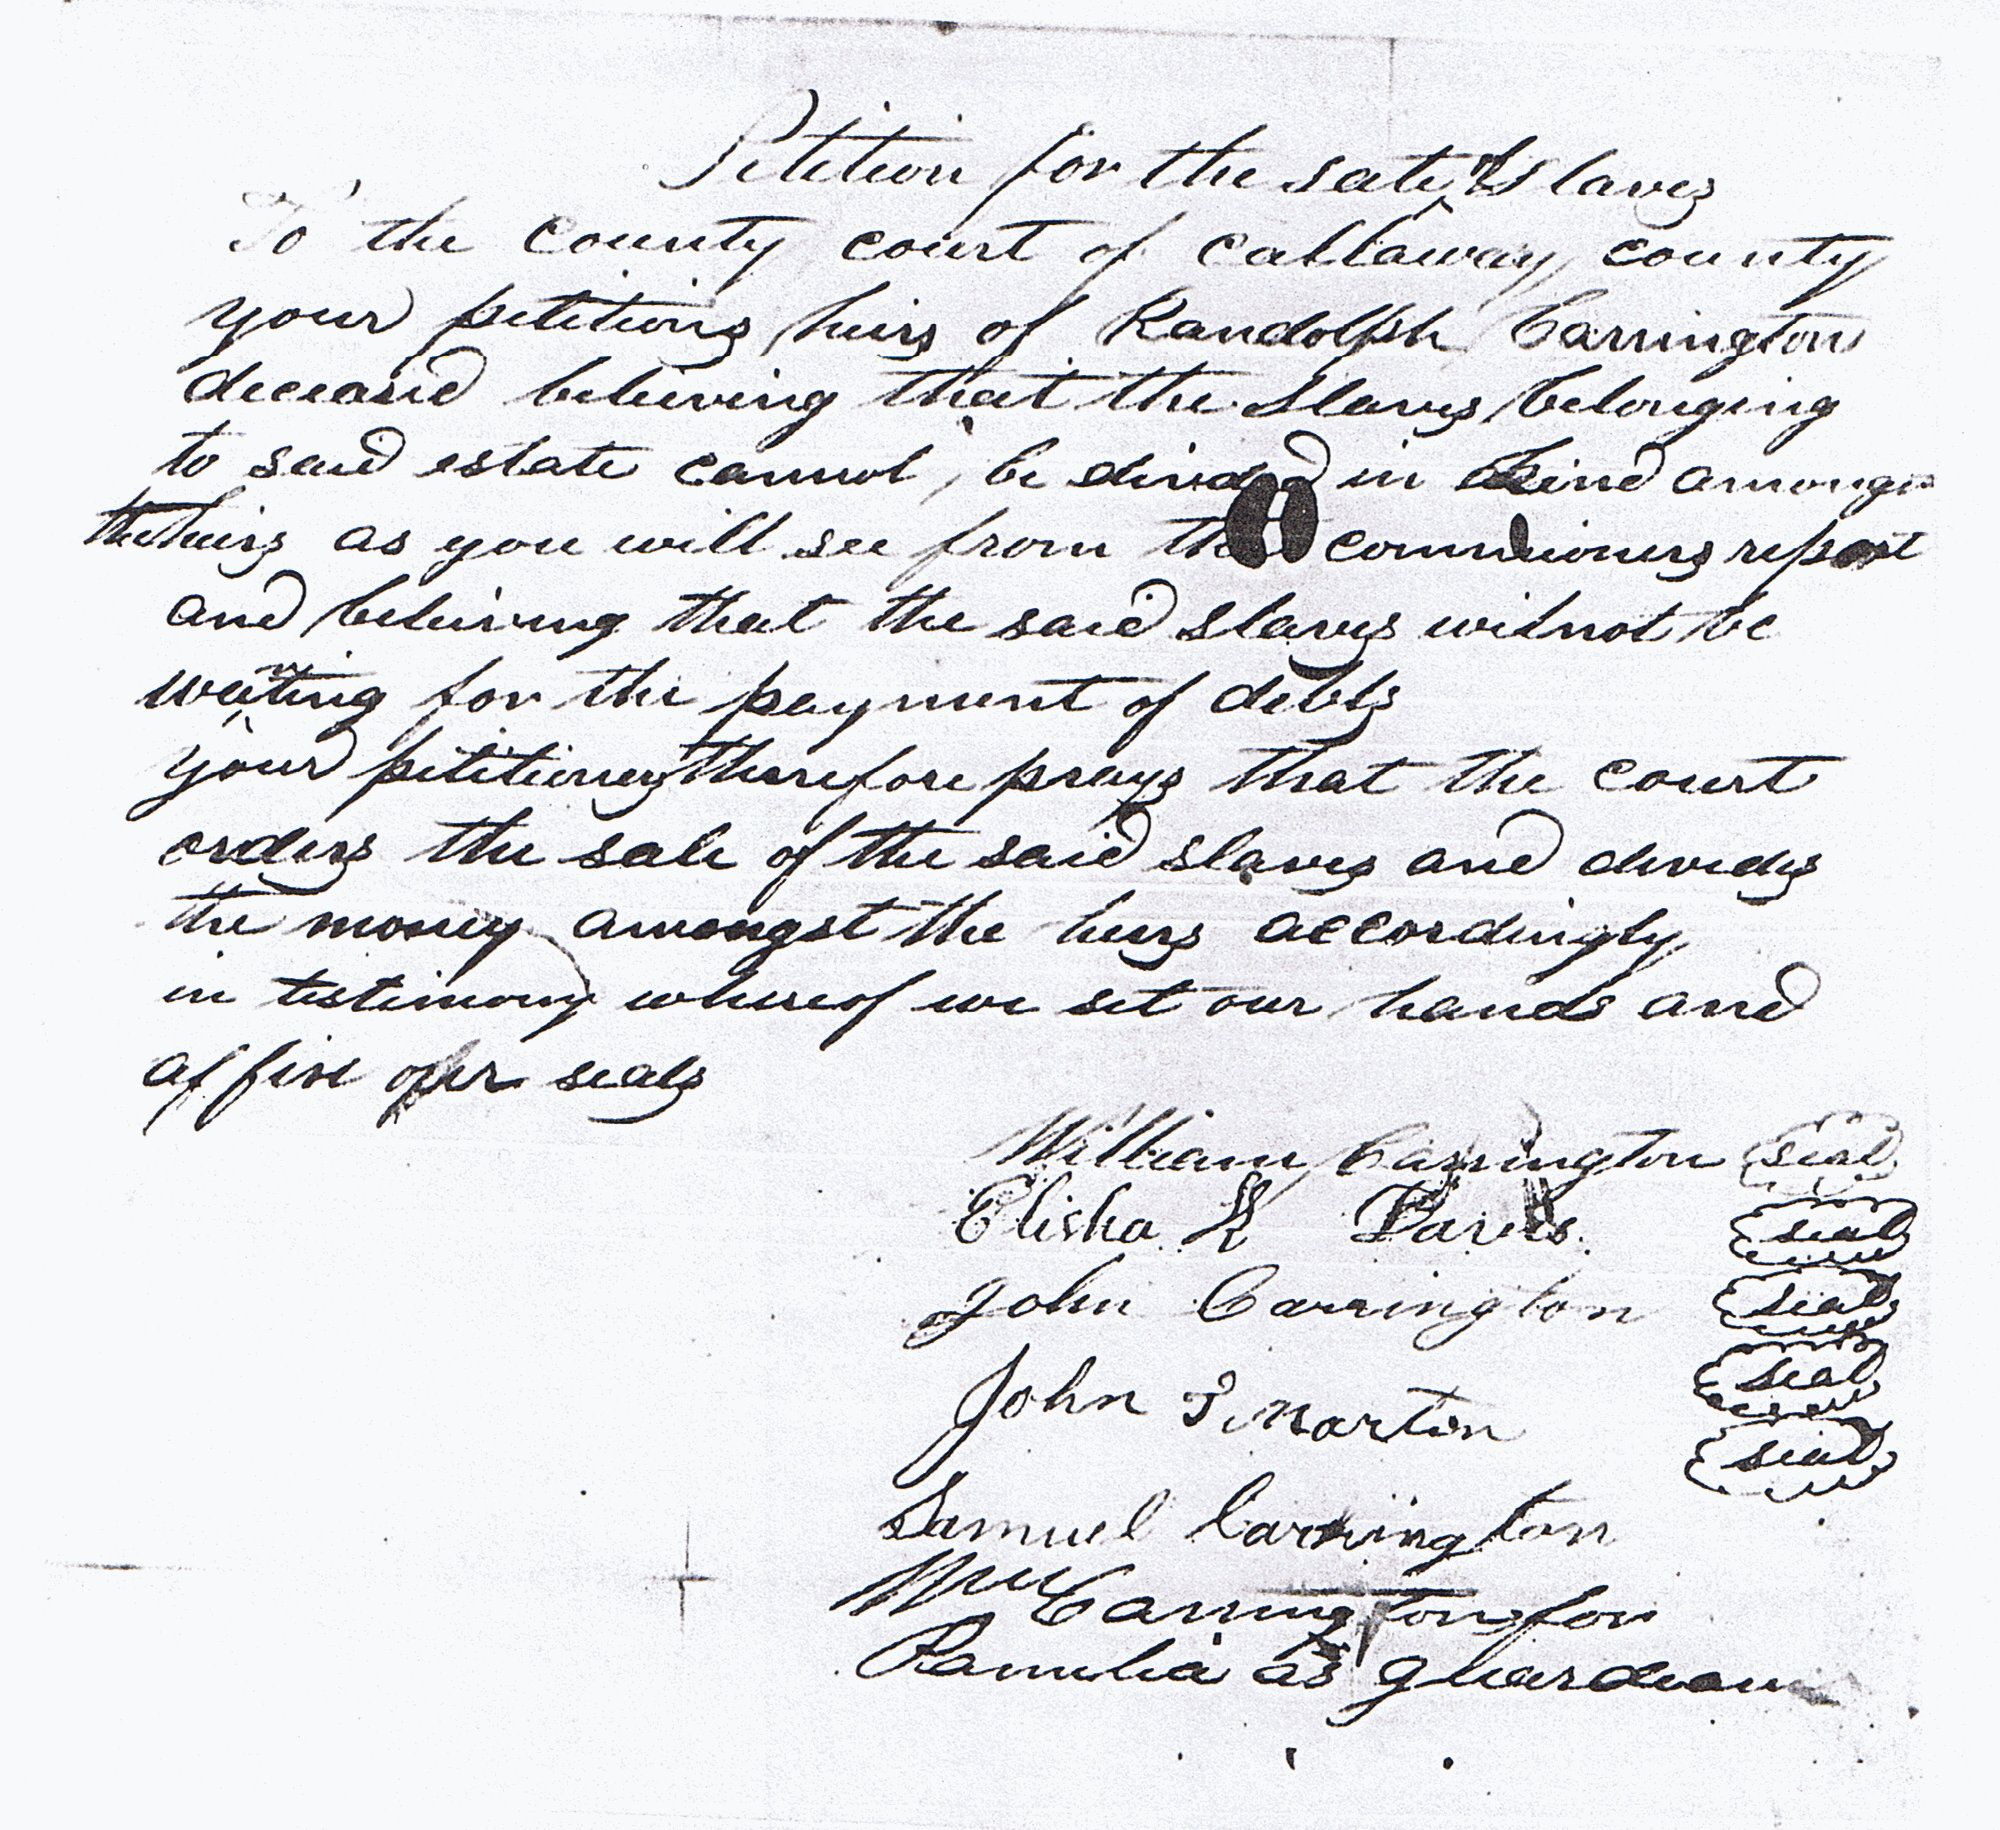 Petition for the sale of Slaves
To the county court of callaway county
your petitions heirs of Randolph Carrington
deceased believing that the slaves belonging
to said estate cannot be divided in kind amongst
the heirs as you will see from the commisioners report
and believing that the said slaves wil not be
wanting for the payment of debts
your petitioners therefore prays that the court
orders the sale of the said slaves and devides
the money amongst the heirs accordingly
in testimony whereof we set our hands and
affix our seals
William Carrington seal
Elisha Davis seal
John Carrington seal
John T Martin seal
Samuel Carrington seal
Wm Carrington for
Pamelia as guardean